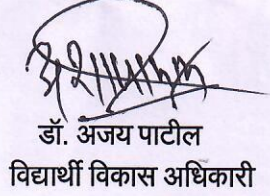 डॉ. अजय पाटील
विद्यार्थी विकास अधिकारी